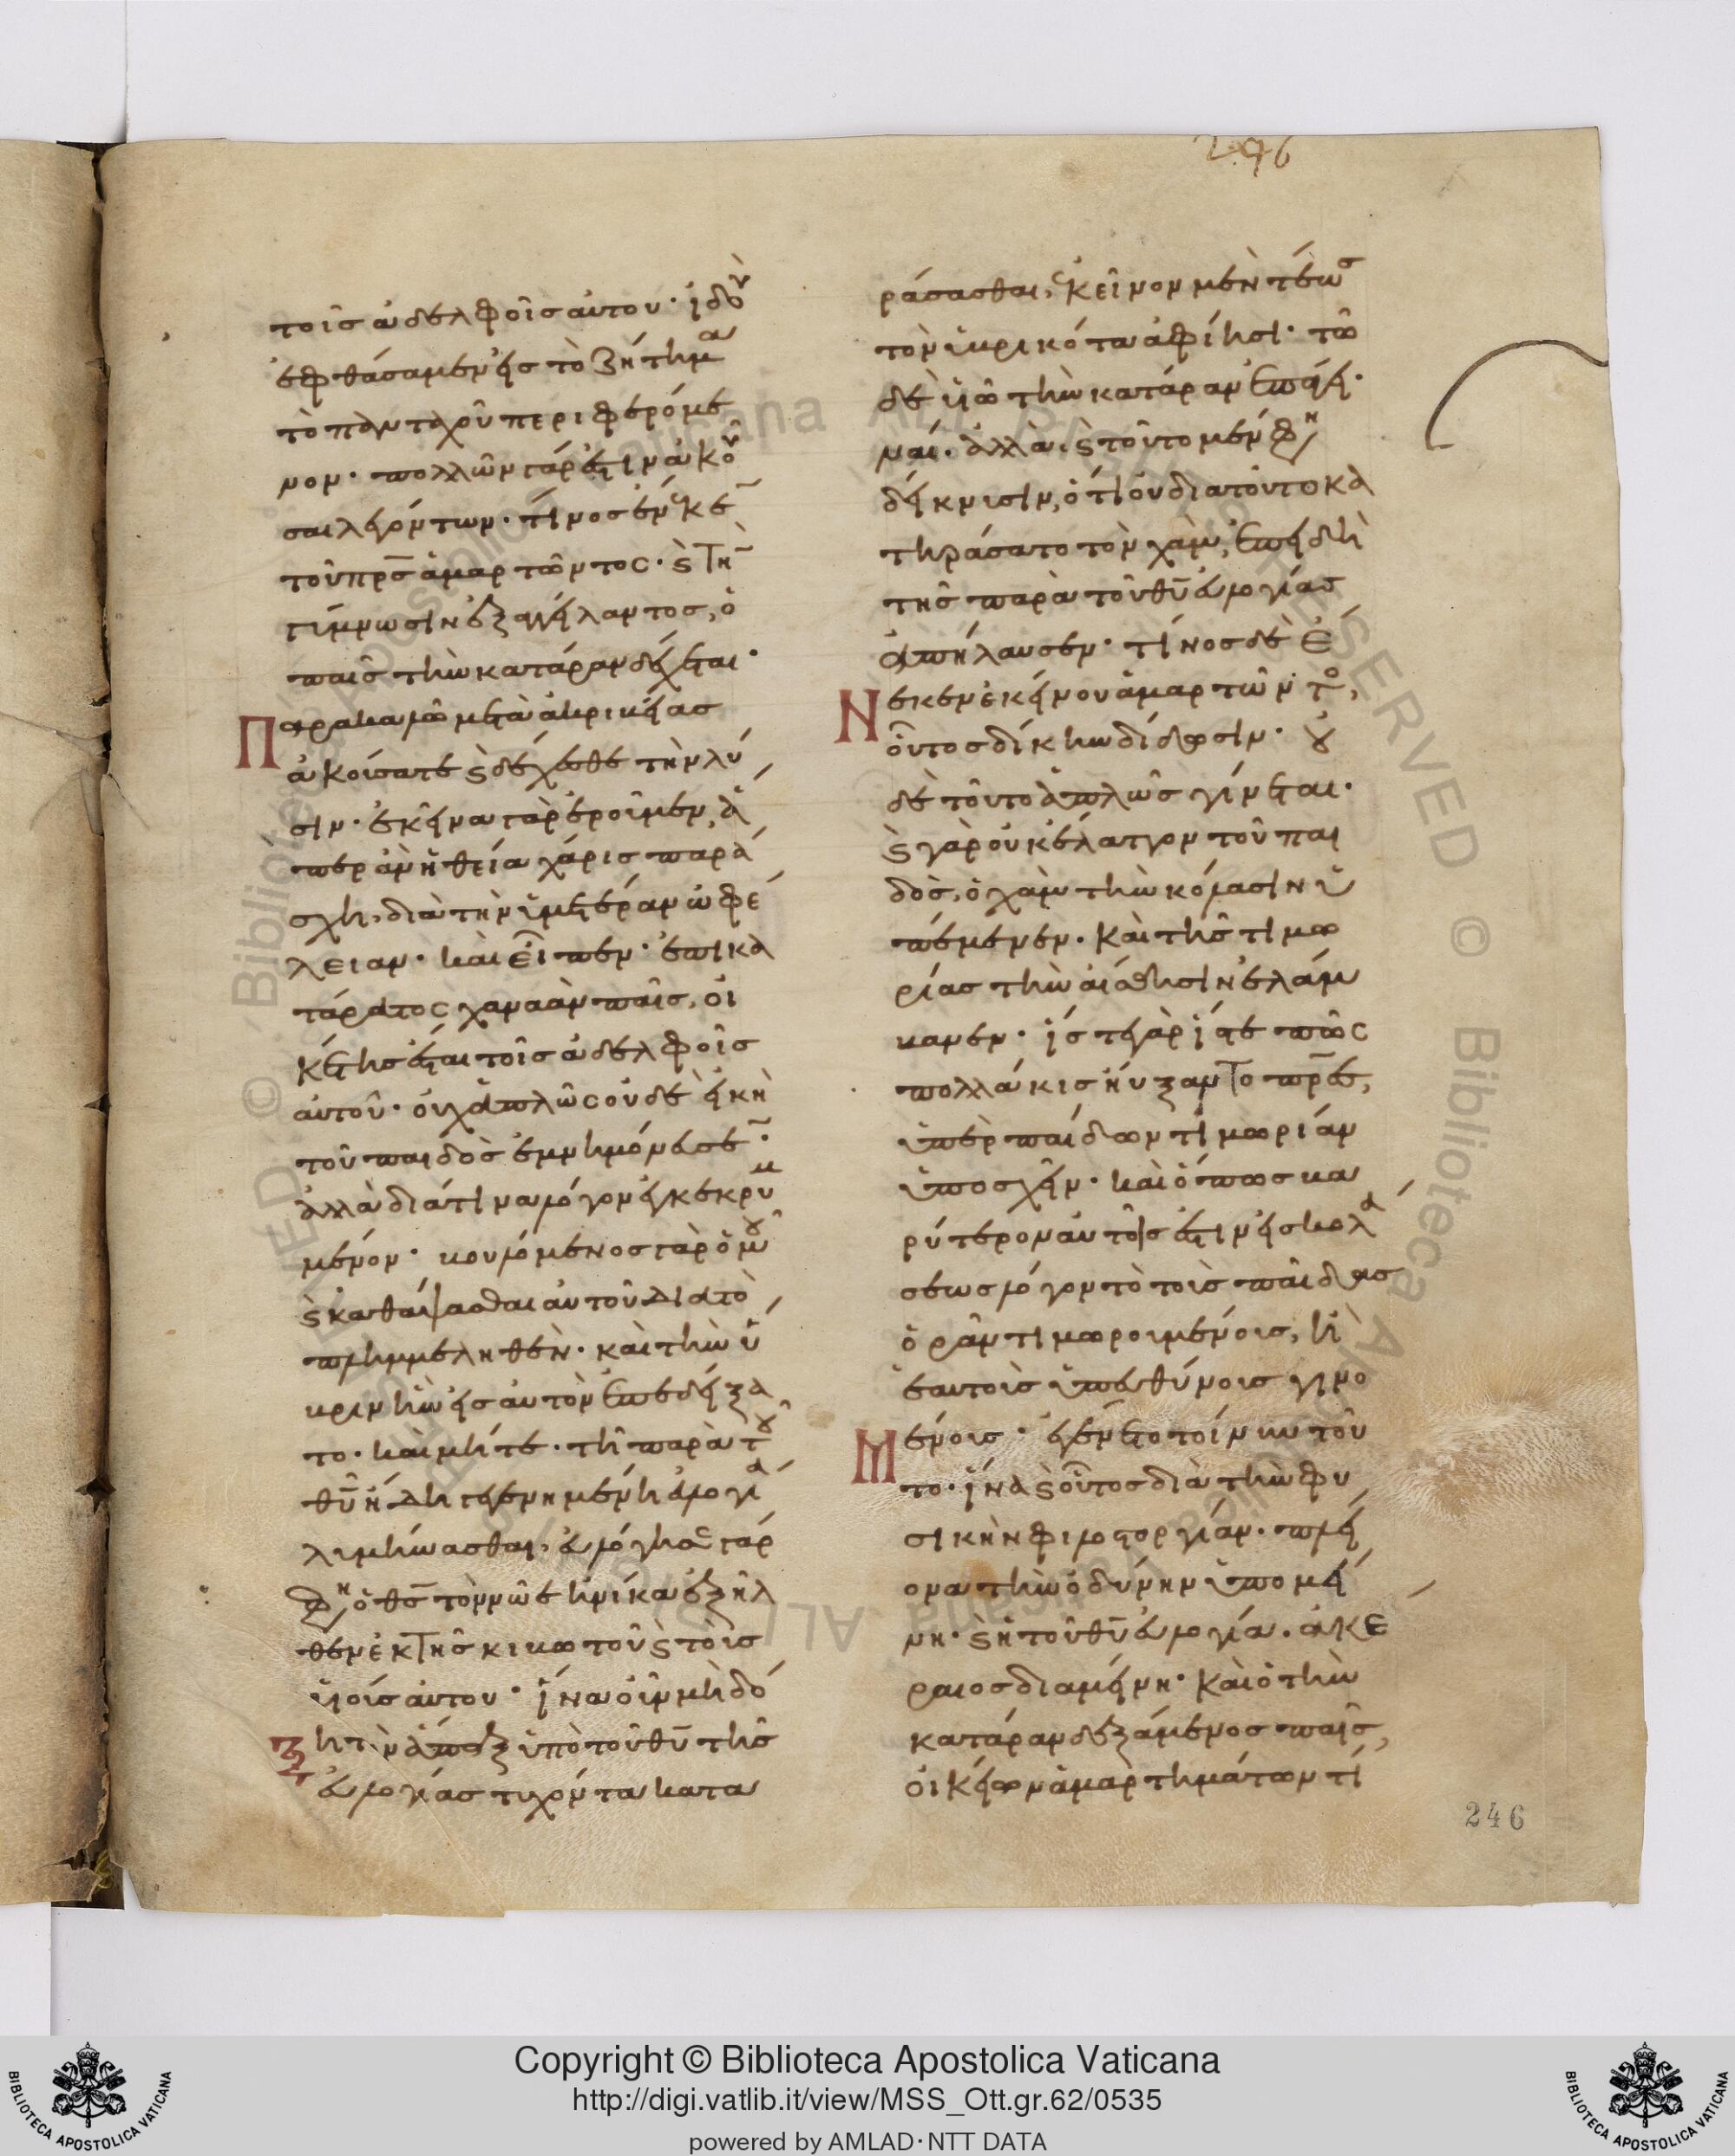 246
τοῖς ἀδελφοῖς αὐτου· ἰδοὺ
ἐφθάσαμεν εἰς τὸ ζήτημα
τὸ πανταχοῦ περιφερόμε
νον· πολλῶν γάρ ἐστιν ἀκοῦ
σαι λεγόντων· τίνος ἕνεκε
τοῦ πρς ἁμαρτῶντος· ϗ τὴ
γύμνωσιν ἐξαγγείλαντος, ὁ
παῖς τὴν κατάραν δέχεται·
Παρακαλῶ μετὰ ἀκριβείας
ἀκούσατε ϗ δέχεσθε τὴν λύ
σιν· ἐκεῖνα γὰρ ἐροῦμεν, ἅ
περ ἂν ἡ θεία χάρις παρά
σχη, διὰ τὴν ὑμετέραν ὠφέ
λειαν· καὶ εἶπεν· ἐπικα
τάρατος χαναὰν παῖς, οἰ
κέτης ἔσται τοῖς ἀδελφοῖς
αὐτοῦ· οὐχ ἁπλῶς οὐδὲ εἰκῆ
τοῦ παιδὸς ἐμνημόνευσε·
ἀλλὰ διά τινα λόγον ἐγκεκρυμ
μένον· βουλόμενος γὰρ ὁμοῦ
ϗ καθάψασθαι αὐτοῦ διὰ τὸ
πλημμεληθὲν· καὶ τὴν ὕ
βριν τὴν εἰς αὐτὸν ἐπεδείξα
το· καὶ μήτε· τῆ παρὰ τοῦ
θυ ἤδη γεγενημένη εὐλογία
λυμήνασθαι, εὐλόγησε γάρ
φη, ὁ θς τὸν νῶε ἡνίκα ἐξῆλ
θεν ἐκ τῆς κιβωτοῦ ϗ τοῖς
υἱοῖς αὐτου· ἵνα οὖν μὴ δό
ξη τὸν ἅπαξ ὑπὸ τοῦ θυ τῆς
εὐλογίας τυχόντα κατα
ράσασθαι, ἐκεῖνον μὲν τέως
τὸν ὑβρικότα ἀφίησι· τῶ
δὲ υἱῶ τὴν κατάραν ἐπάγει·
ναί· ἀλλὰ, ϗ τοῦτο μέν φη
δείκνυσιν, ὅτι οὐ διατοῦτο κα
τηράσατο τὸν χὰμ, ἐπειδὴ
τῆς παρὰ τοῦ θυ εὐλογίας
ἀπήλαυσεν· τίνος δὲ ἕ
Νεκεν ἐκείνου ἁμαρτῶντο,
οὗτος δίκην δίδωσιν· οὐ
δὲ τοῦτο ἁπλῶς γίνεται·
ϗ γὰρ οὐκ ἔλαττον τοῦ παι
δὸς, ὁ χὰμ τὴν κόλασιν ὑ
πέμενεν· καὶ τῆς τιμω
ρίας τὴν αἴσθησιν ἐλάμ
βανεν· ἴστε γὰρ ἴστε πῶς
πολλάκις ηὔξαντο πρες,
ὑπὲρ παίδων τιμωρίαν
ὑποσχεῖν· καὶ ὅπως βα
ρύτερον αὐτοῖς ἐστιν εἰς κολά
σεως λόγον τὸ τοὺς παῖδας
ὁρᾶν τιμωρουμένους, ἢ
ἑαυτοὺς ὑπευθύνους γινο
Μένους· ἐγένετο τοίνυν τοῦ
το· ἵνα ϗ οὗτος διὰ τὴν φυ
σικὴν φιλοστοργίαν· πλεί
ονα τὴν ὀδύνην ὑπομεί
νη· ϗ ἡ τοῦ θυ εὐλογία. ἀκε
ραιος διαμείνη· καὶ ὁ τὴν
κατάραν δεξάμενος παῖς,
οἰκείων ἁμαρτημάτων τί
246
Copyright © Biblioteca Apostolica Vaticana
http://digi.vatlib.it/view/MSS_Ott.gr.62/0535
powered by AMLAD·NTT DATA
BIBLIOTECA APOSTOLICA VATICANA
BIBLIOTECA APOSTOLICA VATICANA